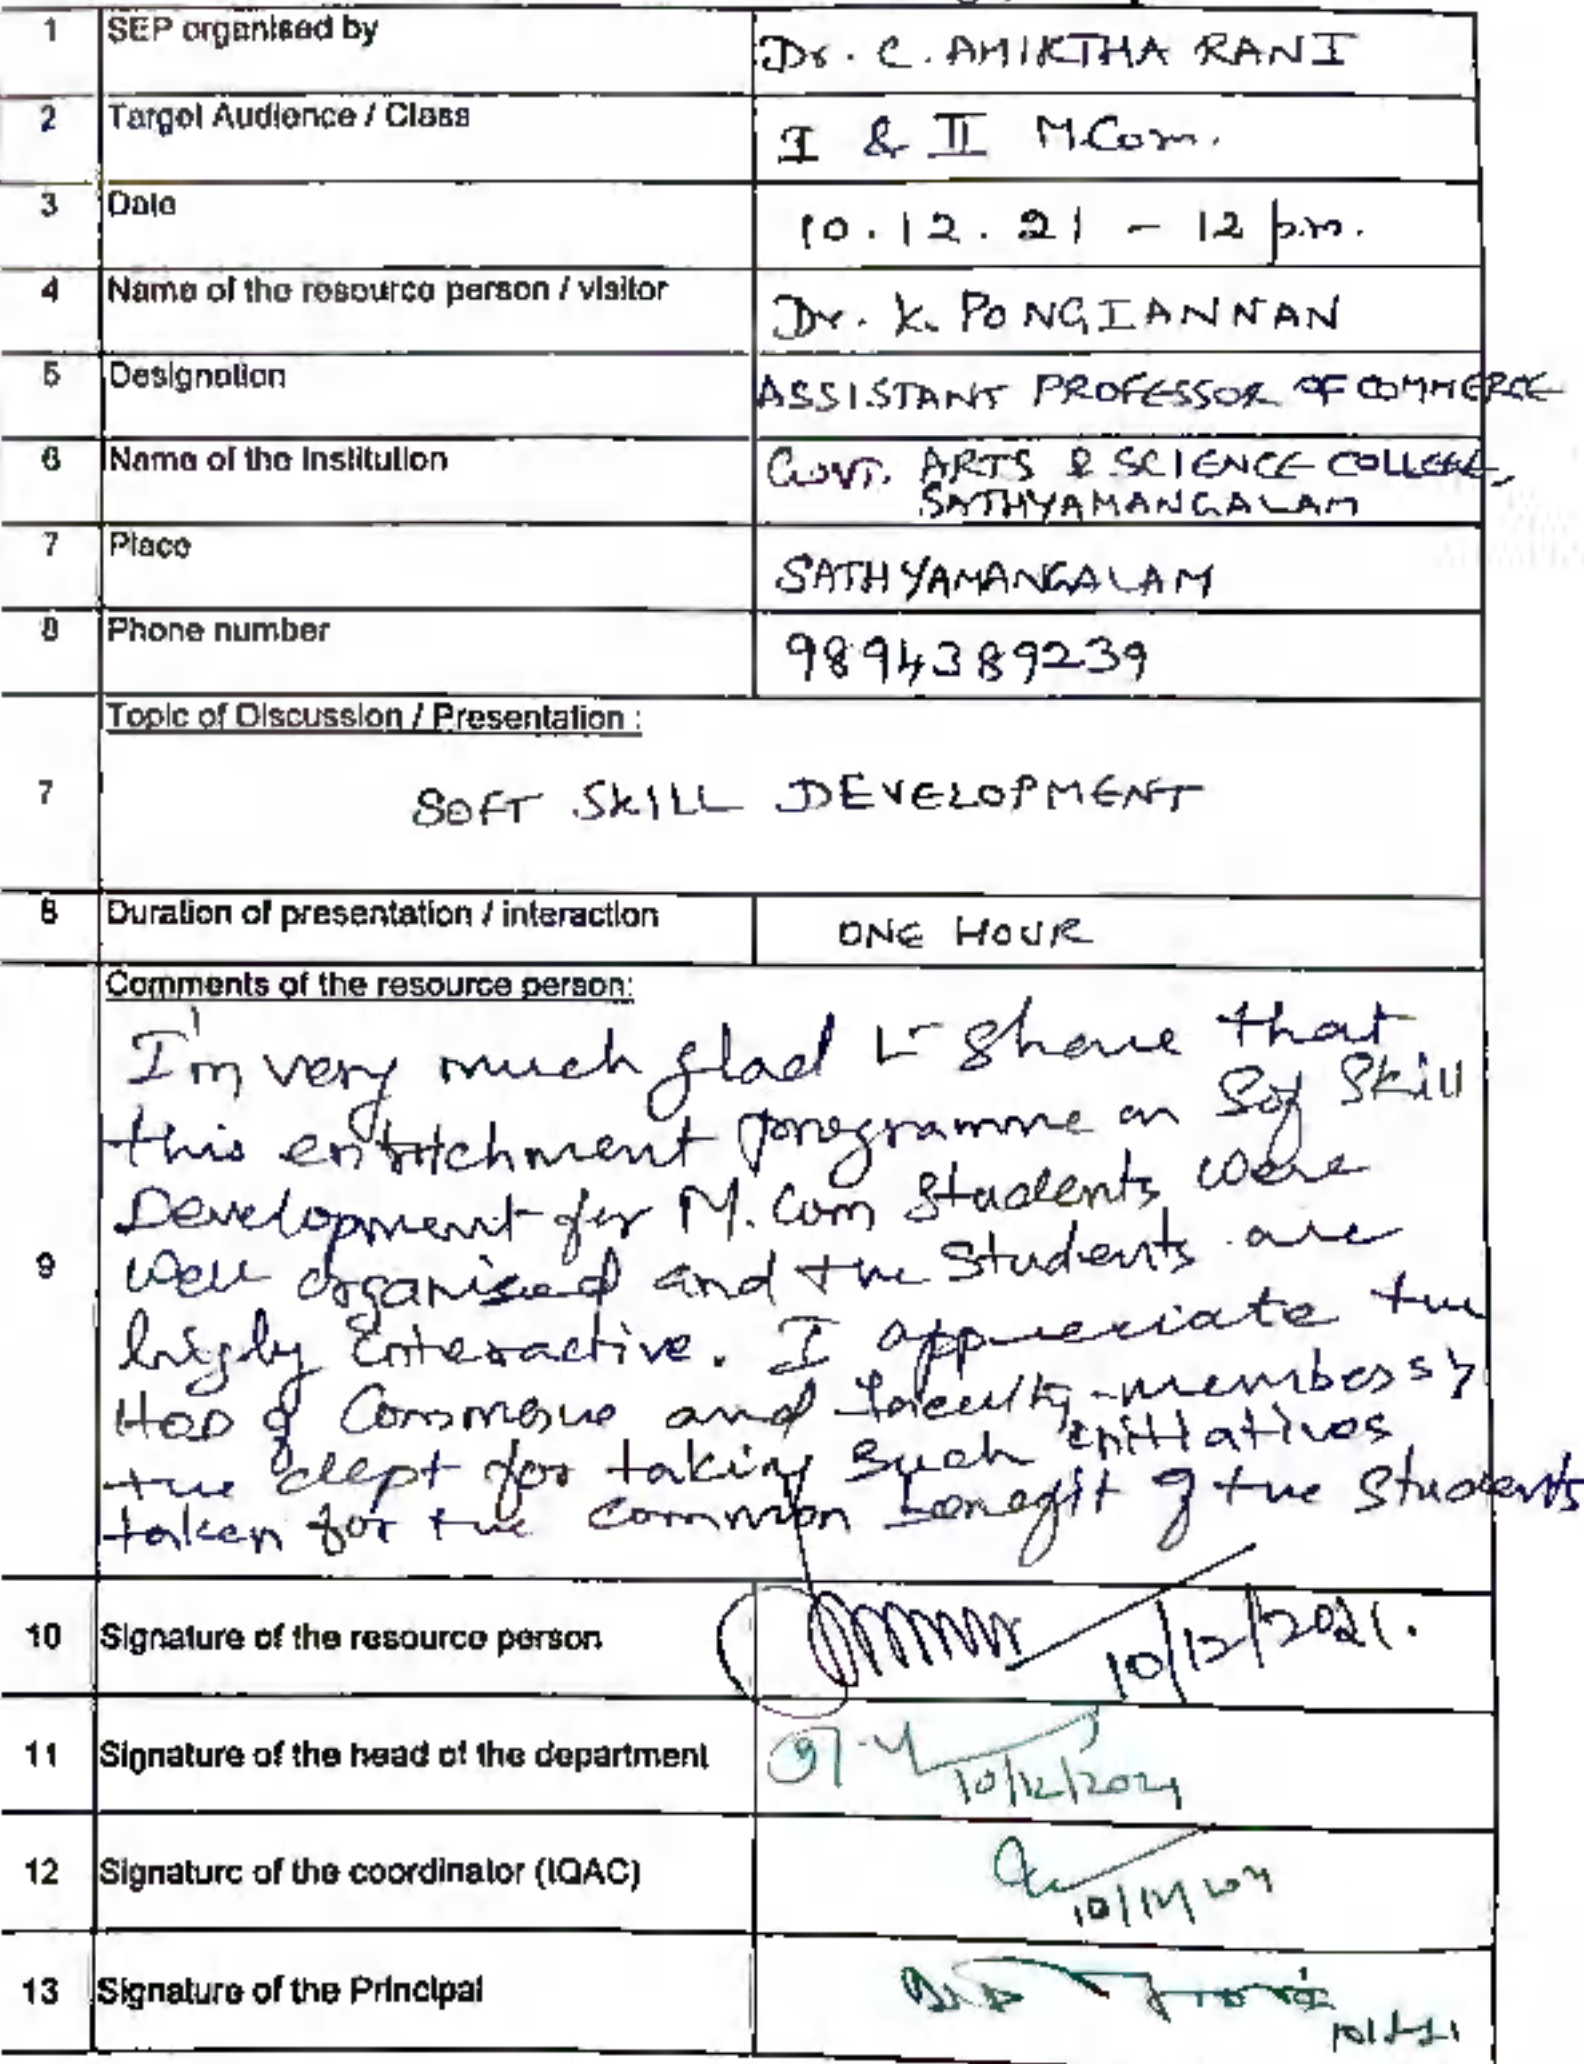 1 SEP organised by Dr. C. AMIKTHA RANI
2 Target Audience / Class I & II M.Com.
3 Date 10.12.21 - 12 p.m.
4 Name of the resource person / visitor Dr. K. PONGIANNAN
5 Designation ASSISTANT PROFESSOR OF COMMERCE
6 Name of the Institution GOVT. ARTS & SCIENCE COLLEGE,
SATHYAMANGALAM
7 Place SATHYAMANGALAM
8 Phone number 9894389239
Topic of Discussion / Presentation :
7 SOFT SKILL DEVELOPMENT
8 Duration of presentation / interaction ONE HOUR
Comments of the resource person:
I'm very much glad to share that
this enrichment programme on Soft Skill
Development for M.Com Students were
9 well organised and the Students are
highly interactive. I appreciate the
HOD of Commerce and faculty members of
the dept for taking such initiatives
taken for the common benefit of the Students
10 Signature of the resource person 10/12/2021.
11 Signature of the head of the department 10/12/2021
12 Signature of the coordinator (IQAC)
13 Signature of the Principal